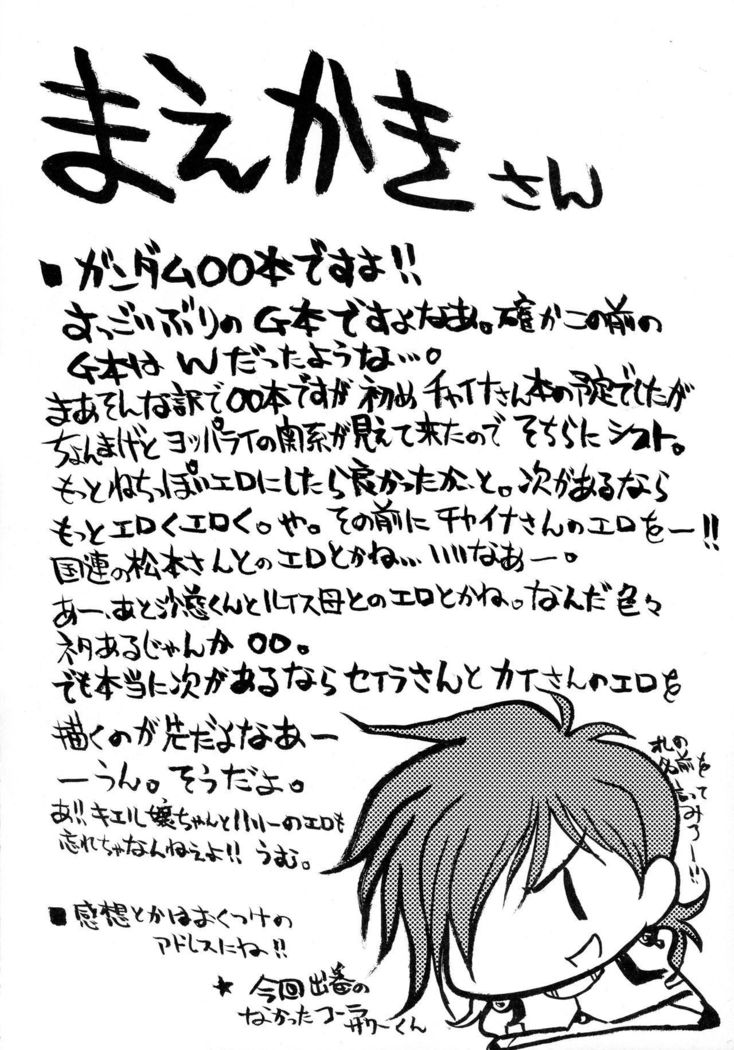 まえかきさん
■ガンダム00本ですよ!!
すっごいぶりのG本ですよなあ。確かこの前の
G本はWだったような…。
まあそんな訳で00本ですが初めチャイナさん本の予定でしたが
ちょんまげとヨッパライの関係が見えて来たのでそちらにシフト。
もっとねちっぽいエロにしたら良かったか、と。次があるなら
もっとエロくエロく。や。その前にチャイナさんのエロをー!!
国連の松本さんとのエロとかね…いいなあー。
あー、あと沙慈くんとルイス母とのエロとかね。なんだ色々
ネタあるじゃんか00。
でも本当に次があるならセイラさんとカイさんのエロを
描くのが先だよなあー
ーうん。そうだよ。
あ!!キエル嬢ちゃんとハリーのエロも
忘れちゃなんねえよ!!うむ。
オレの
名前を
言って
みろー!!
■感想とかはおくつけの
アドレスにね!!
★今回出番の
なかったコーラ
サワーくん